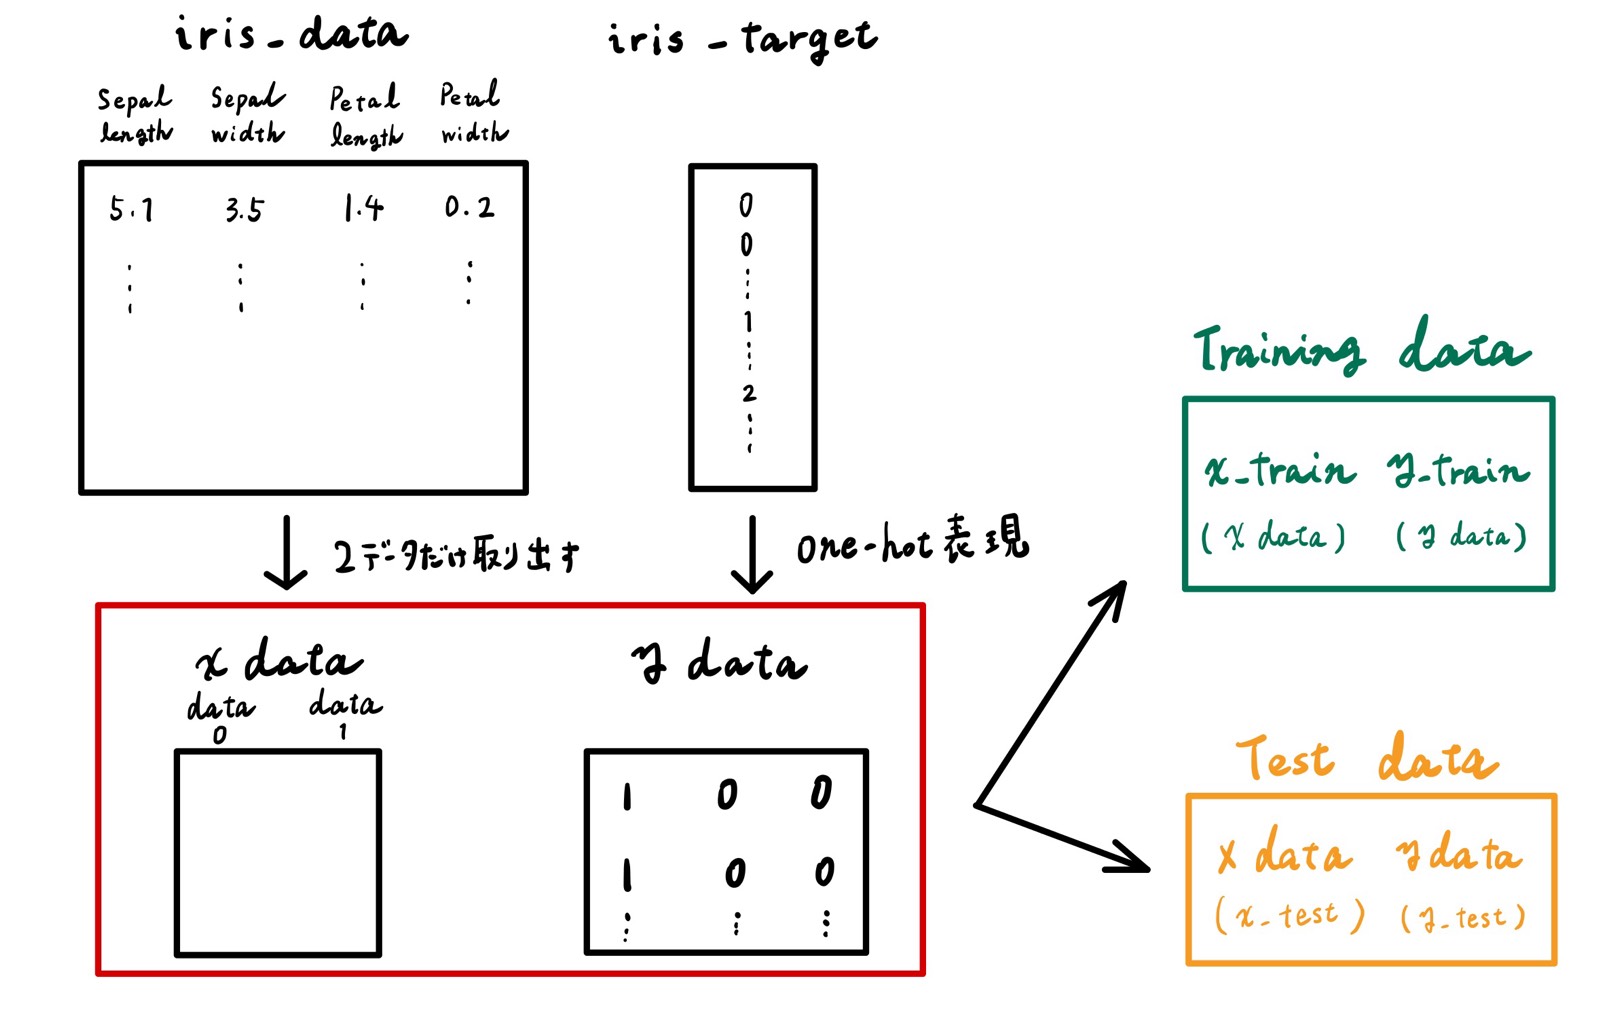 iris_data
Sepal length
Sepal width
Petal length
Petal width
5.1 3.5 1.4 0.2
iris_target
0
0
1
2
2データだけ取り出す
one-hot表現
x data
data 0
data 1
y data
1 0 0
1 0 0
Training data
x_train y_train
(x data) (y data)
Test data
x data y data
(x_test) (y_test)